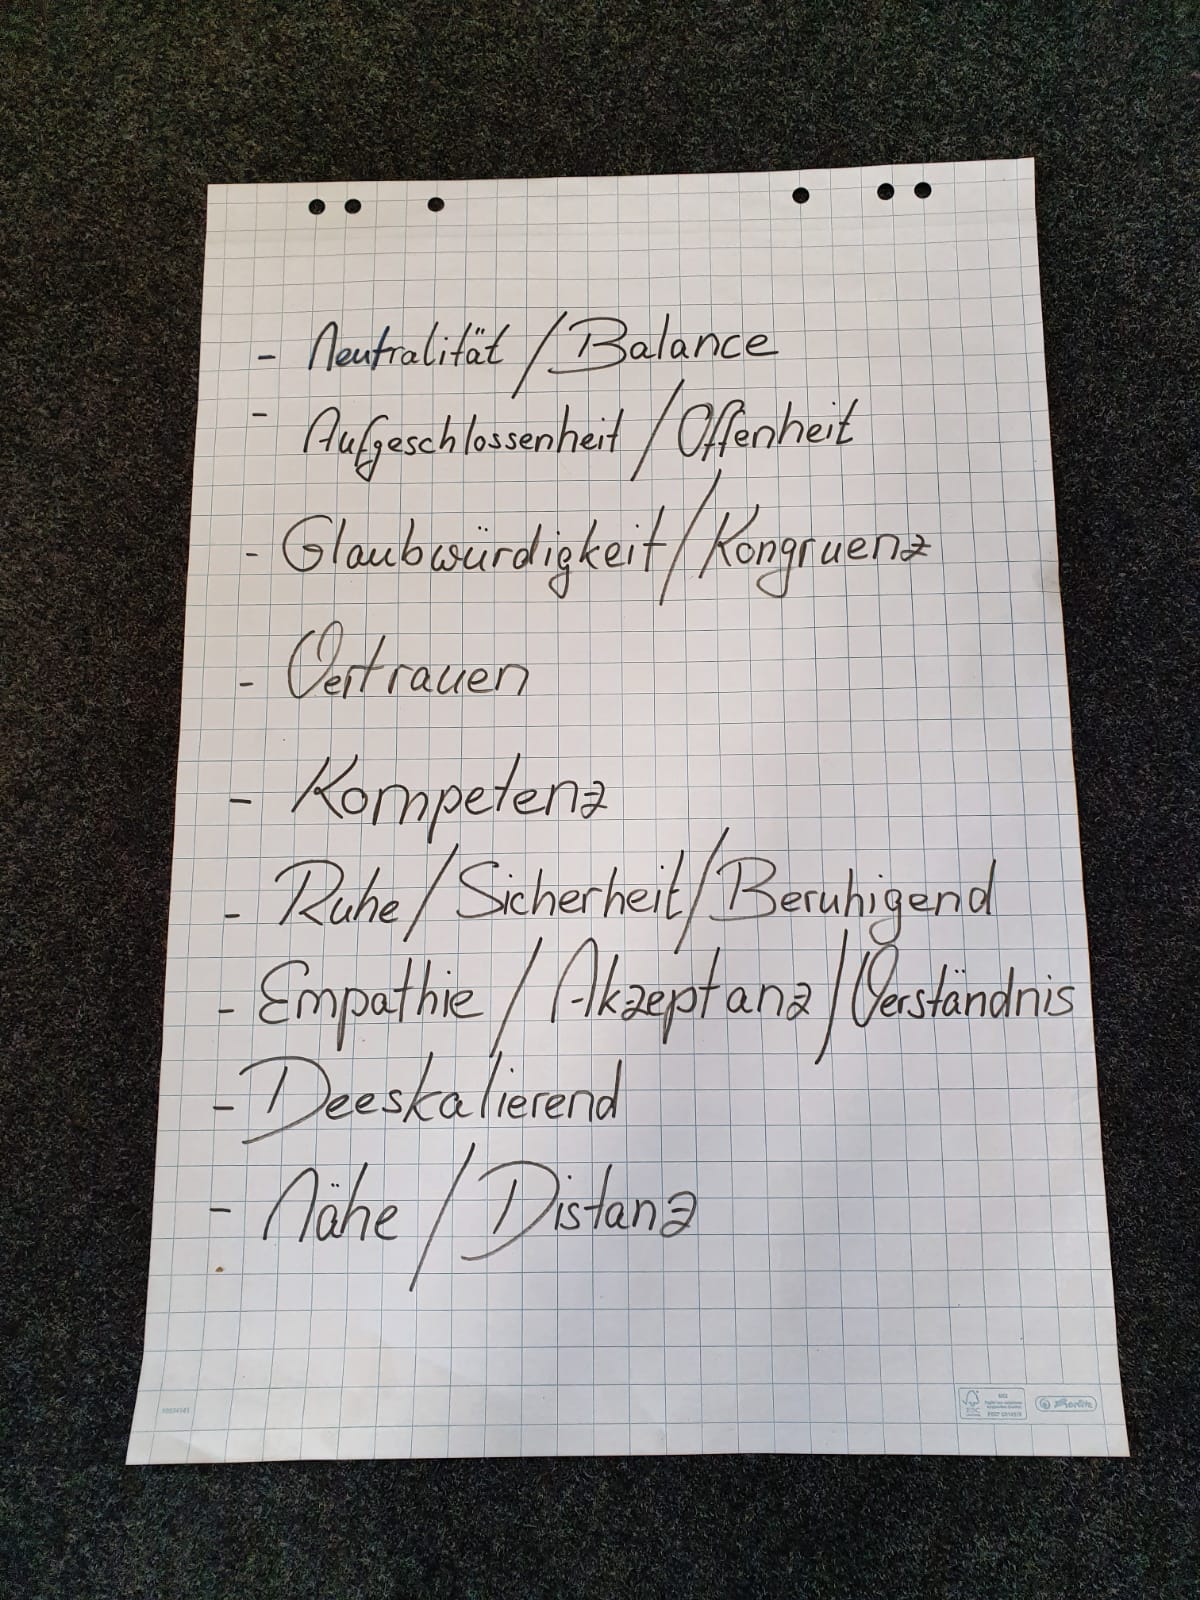 - Neutralität / Balance
- Aufgeschlossenheit / Offenheit
- Glaubwürdigkeit / Kongruenz
- Vertrauen
- Kompetenz
- Ruhe / Sicherheit / Beruhigend
- Empathie / Akzeptanz / Verständnis
- Deeskalierend
- Nähe / Distanz
FSC